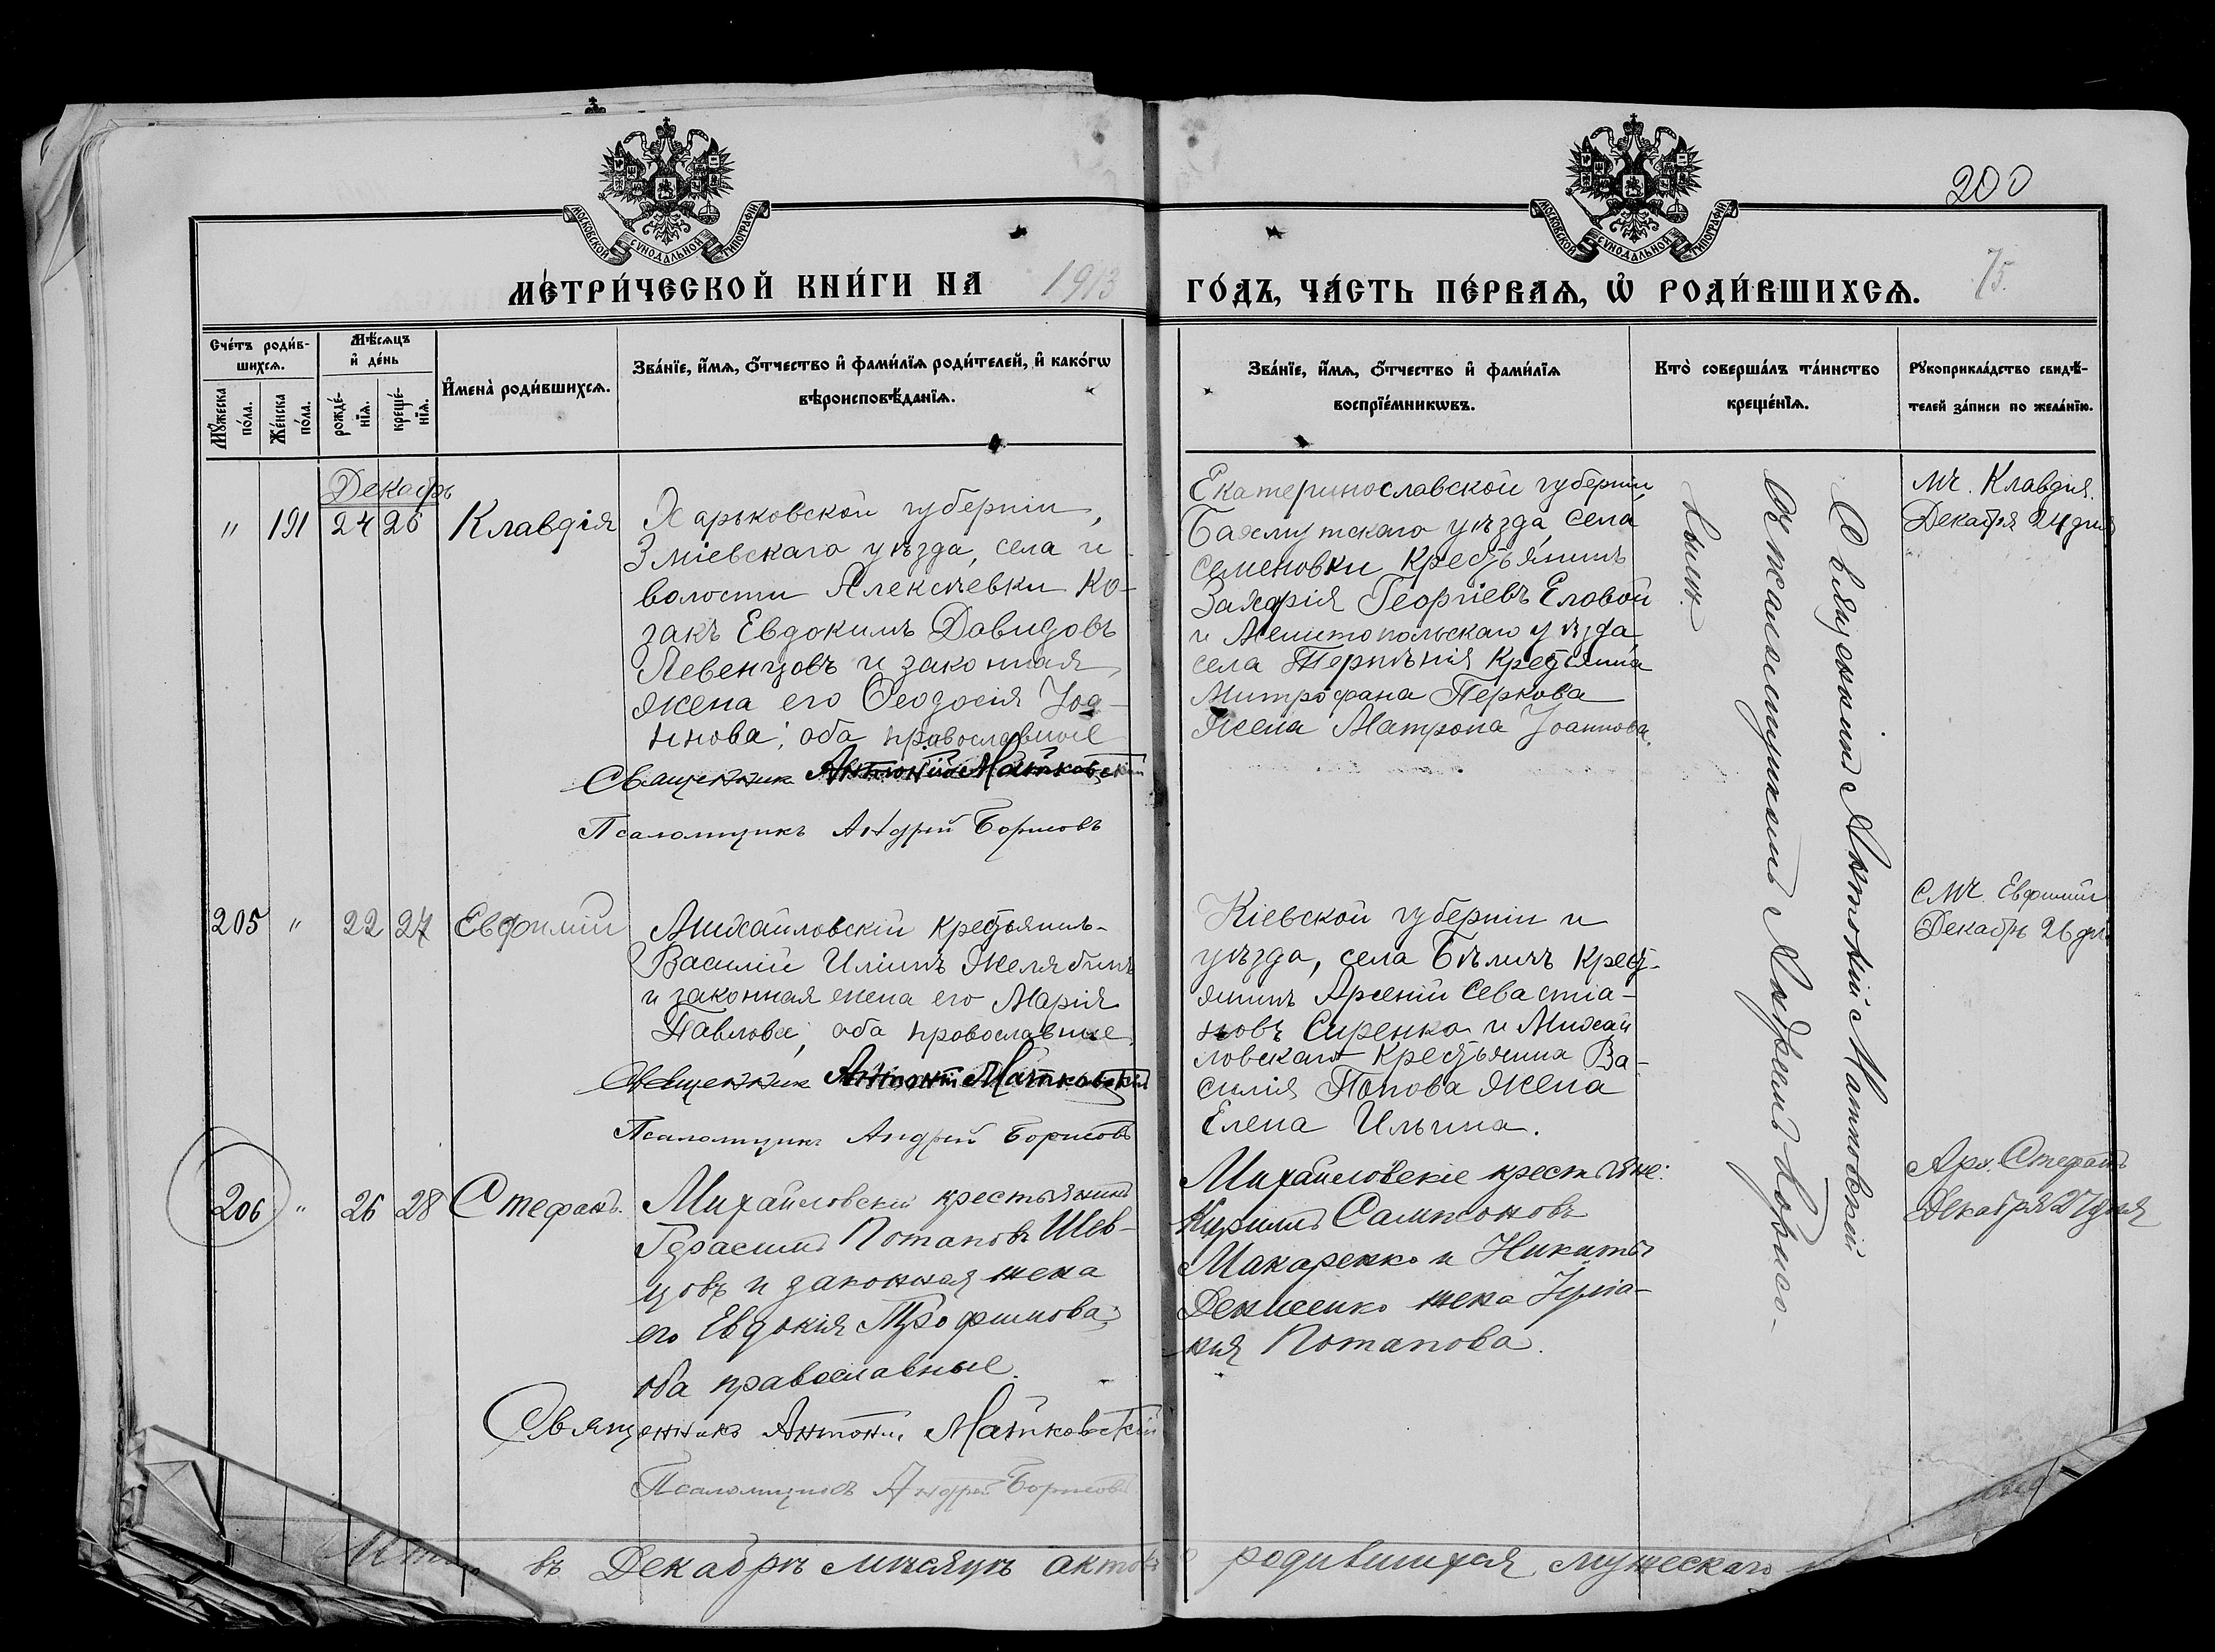 МОСКОВСКОЙ СѴНОДАЛЬНОЙ ТИПОГРАФІИ
МОСКОВСКОЙ СѴНОДАЛЬНОЙ ТИПОГРАФІИ
200
МЕТРИ́ЧЕСКОЙ КНИ́ГИ НА 1913
ГО́ДЪ, ЧА́СТЬ ПЕ́РВАѦ, Ѡ҆ РОДИ́ВШИХСѦ.
75.
Сче́тъ роди́в-
шихсѧ.
Мꙋ́жеска по́ла.
Же́нска по́ла.
Мѣ́сѧцъ
и҆ де́нь
рожде́-
нїѧ.
креще́-
нїѧ.
И҆мена̀ роди́вшихсѧ.
Зва́нїе, и҆́мѧ, ѻ҆́тчество и҆ фами́лїѧ роди́телей, и҆ како́гѡ
вѣроисповѣ́данїѧ.
Зва́нїе, и҆́мѧ, ѻ҆́тчество и҆ фами́лїѧ
воспрїе́мникѡвъ.
Кто̀ соверша́лъ та́инство
креще́нїѧ.
Рꙋкоприкла́дство свидѣ́-
телей за́писи по жела́нїю.
Декабрь
" 191 24 26 Клавдія
Харьковской губерніи,
Зміевскаго уѣзда, села и
волости Алексѣевки Ко-
закъ Евдокимъ Давидовъ
Левенцовъ и законная
жена его Ѳеодосія Іоа-
ннова; оба православные
Священник Антоній Матковскій
Псаломщикъ Андрей Борисовъ
Екатеринославской губерніи
Бахмутскаго уѣзда, села
Семеновки Крестьянинъ
Захарія Георгіевъ Еловой
и Мелитопольскаго уѣзда
села Терпѣнія Крестьянина
Митрофана Перкова
жена Матрона Іоаннова.
Священникъ Антоній Матковскій
съ псаломщикомъ Андреемъ Борисо-
вымъ.
мч. Клавдія.
Декабря 24 дня
205 " 22 27 Евфимій
Михайловскій Крестьянинъ
Василій Иліинъ Желябинъ
и законная жена его Марія
Павлова, оба православные
Священник Антоній Матковскій
Псаломщикъ Андрей Борисовъ
Кіевской губерніи и
уѣзда, села Бѣличъ Крест-
янинъ Арсеній Севастіа-
новъ Сиренко и Михай
ловскаго Крестьянина Ва-
силія Попова жена
Елена Ильина.
смч. Евфимій
Декабрь 26 дн.
206 " 26 28 Стефанъ.
Михайловскій крестьянинъ
Герасимъ Потаповъ Шев-
цовъ и законная жена
его Евдокія Трофимова;
оба православные.
Священникъ Антоній Матковскій
Псаломщикъ Андрей Борисовъ
Михайловскіе крестьяне:
Кириллъ Сампсоновъ
Макаренко и Никиты
Денисенко жена Іуліа-
нія Потапова.
Арх. Стефанъ
Декабря 27 дня
въ Декабрѣ мѣсяцѣ актовъ родившихся мужескаго